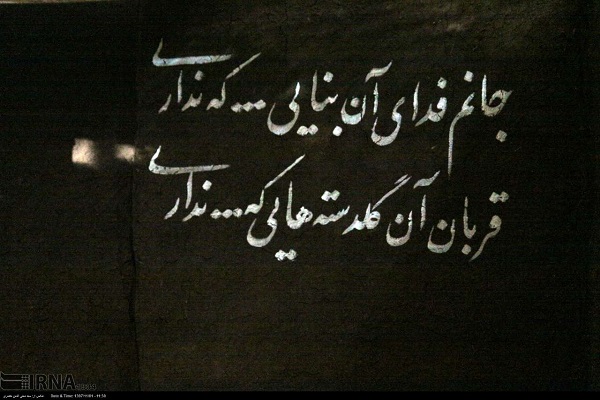 جانم فدای آن بنایی ... که نداری
قربان آن گلدسته هایی که ... نداری
IRNA